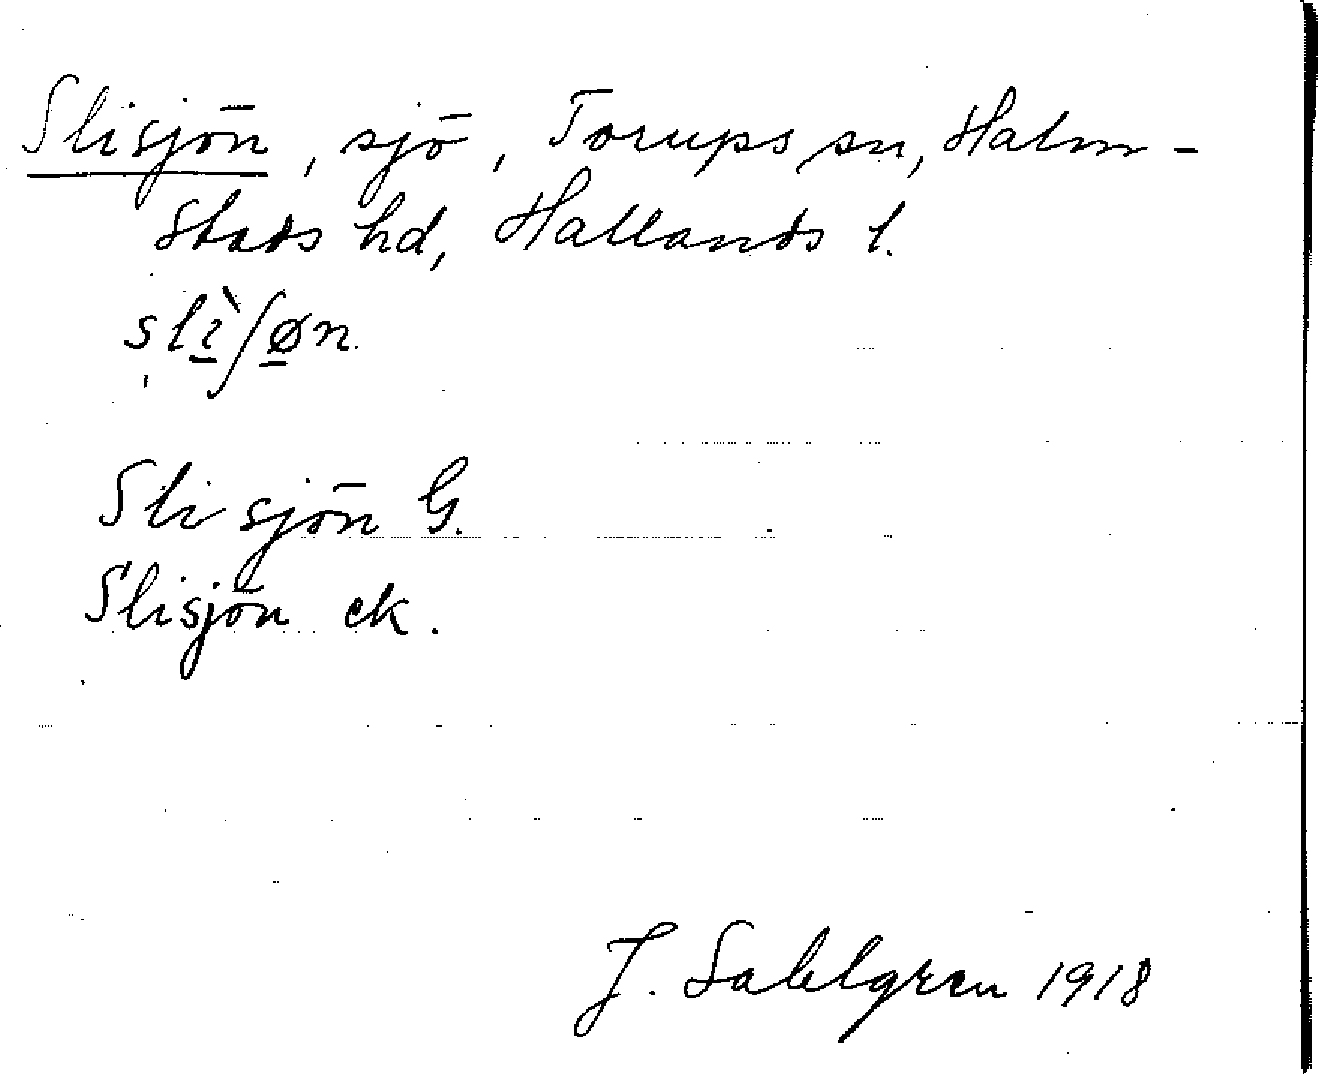 Slisjön, sjö, Torups sn, Halm-
stads hd, Hallands l.
slìʃøn.
Slisjön G.
Slisjön ek.
J. Sahlgren 1918